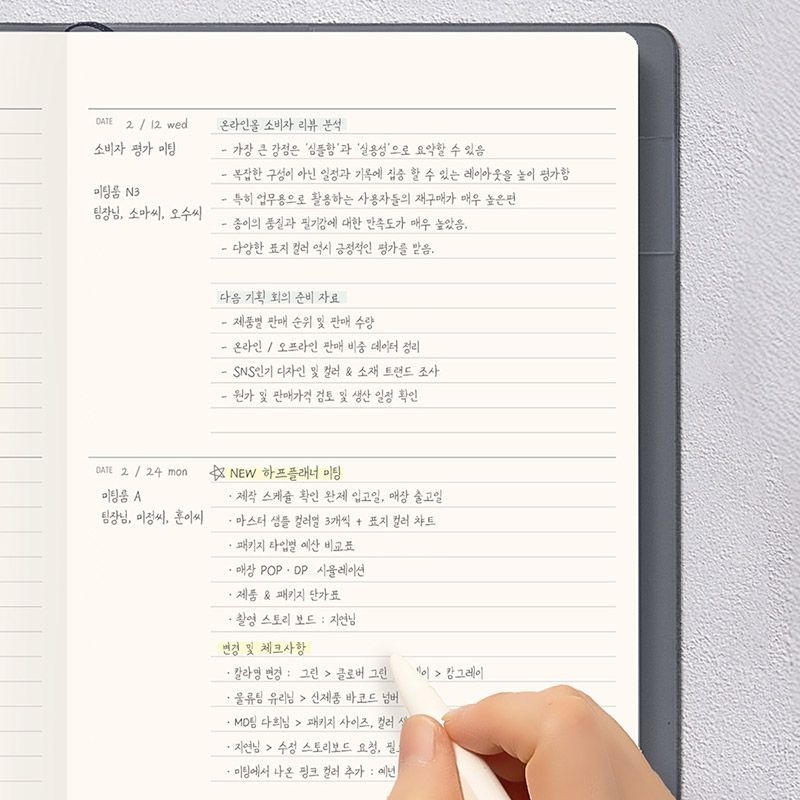 DATE 2 / 12 wed
소비자 평가 미팅
미팅룸 N3
팀장님, 소마씨, 오수씨
온라인몰 소비자 리뷰 분석
- 가장 큰 강점은 '심플함'과 '실용성'으로 요약할 수 있음
- 복잡한 구성이 아닌 일정과 기록에 집중 할 수 있는 레이아웃을 높이 평가함
- 특히 업무용으로 활용하는 사용자들의 재구매가 매우 높은편
- 종이의 품질과 필기감에 대한 만족도가 매우 높았음.
- 다양한 표지 컬러 역시 긍정적인 평가를 받음.
다음 기획 회의 준비 자료
- 제품별 판매 순위 및 판매 수량
- 온라인 / 오프라인 판매 비중 데이터 정리
- SNS인기 디자인 및 컬러 & 소재 트랜드 조사
- 원가 및 판매가격 검토 및 생산 일정 확인
DATE 2 / 24 mon
미팅룸 A
팀장님, 미정씨, 훈이씨
☆ NEW 하프플래너 미팅
· 제작 스케쥴 확인 완제 입고일, 매장 출고일
· 마스터 샘플 컬러별 3개씩 + 표지 컬러 챠트
· 패키지 타입별 예산 비교표
· 매장 POP · DP 시뮬레이션
· 제품 & 패키지 단가표
· 촬영 스토리 보드 : 지연님
변경 및 체크사항
· 칼라명 변경 : 그린 > 클로버 그린 > 캄그레이
· 물류팀 유리님 > 신제품 바코드 넘버
· MD팀 다희님 > 패키지 사이즈, 컬러
· 지연님 > 수정 스토리보드 요청,
· 미팅에서 나온 핑크 컬러 추가 :